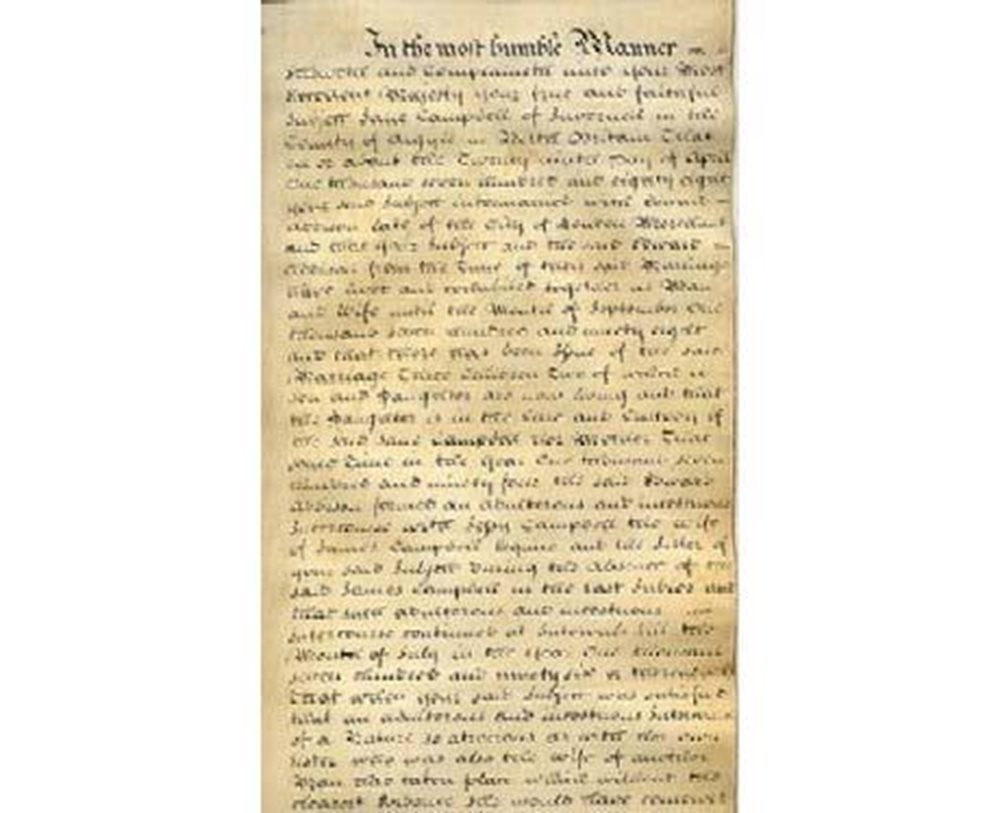 In the most humble Manner
Sheweth and Complaineth unto your Most
Excellent Majesty your true and faithful
Subject Jane Campbell of Inverneil in the
County of Argyll in North Britain That
on or about the Twenty ninth Day of April
One thousand seven hundred and eighty eight
your said Subject intermarried with Edward
Addison late of the City of London Merchant
and that your Subject and the said Edward
Addison from the Time of their said Marriage
lived and cohabited together as Man
and Wife until the Month of September One
thousand seven hundred and ninety eight
and that there has been Issue of the said
Marriage Three Children Two of which a
Son and Daughter are now living and that
the Daughter is in the Care and Custody of
the said Jane Campbell her Mother That
some Time in the Year One thousand seven
hundred and ninety four the said Edward
Addison formed an adulterous and incestuous
Intercourse with Jessy Campbell the Wife
of James Campbell Esquire and the Sister of
your said Subject during the absence of the
said James Campbell in the East Indies and
that such adulterous and incestuous
Intercourse continued at Intervals till the
Month of July in the Year One thousand
seven hundred and ninety six or
That when your said Subject was satisfied
that an adulterous and incestuous Intercourse
of a Nature so atrocious as with her own
Sister who was also the Wife of another
Man had taken place which without the
clearest Evidence she would have